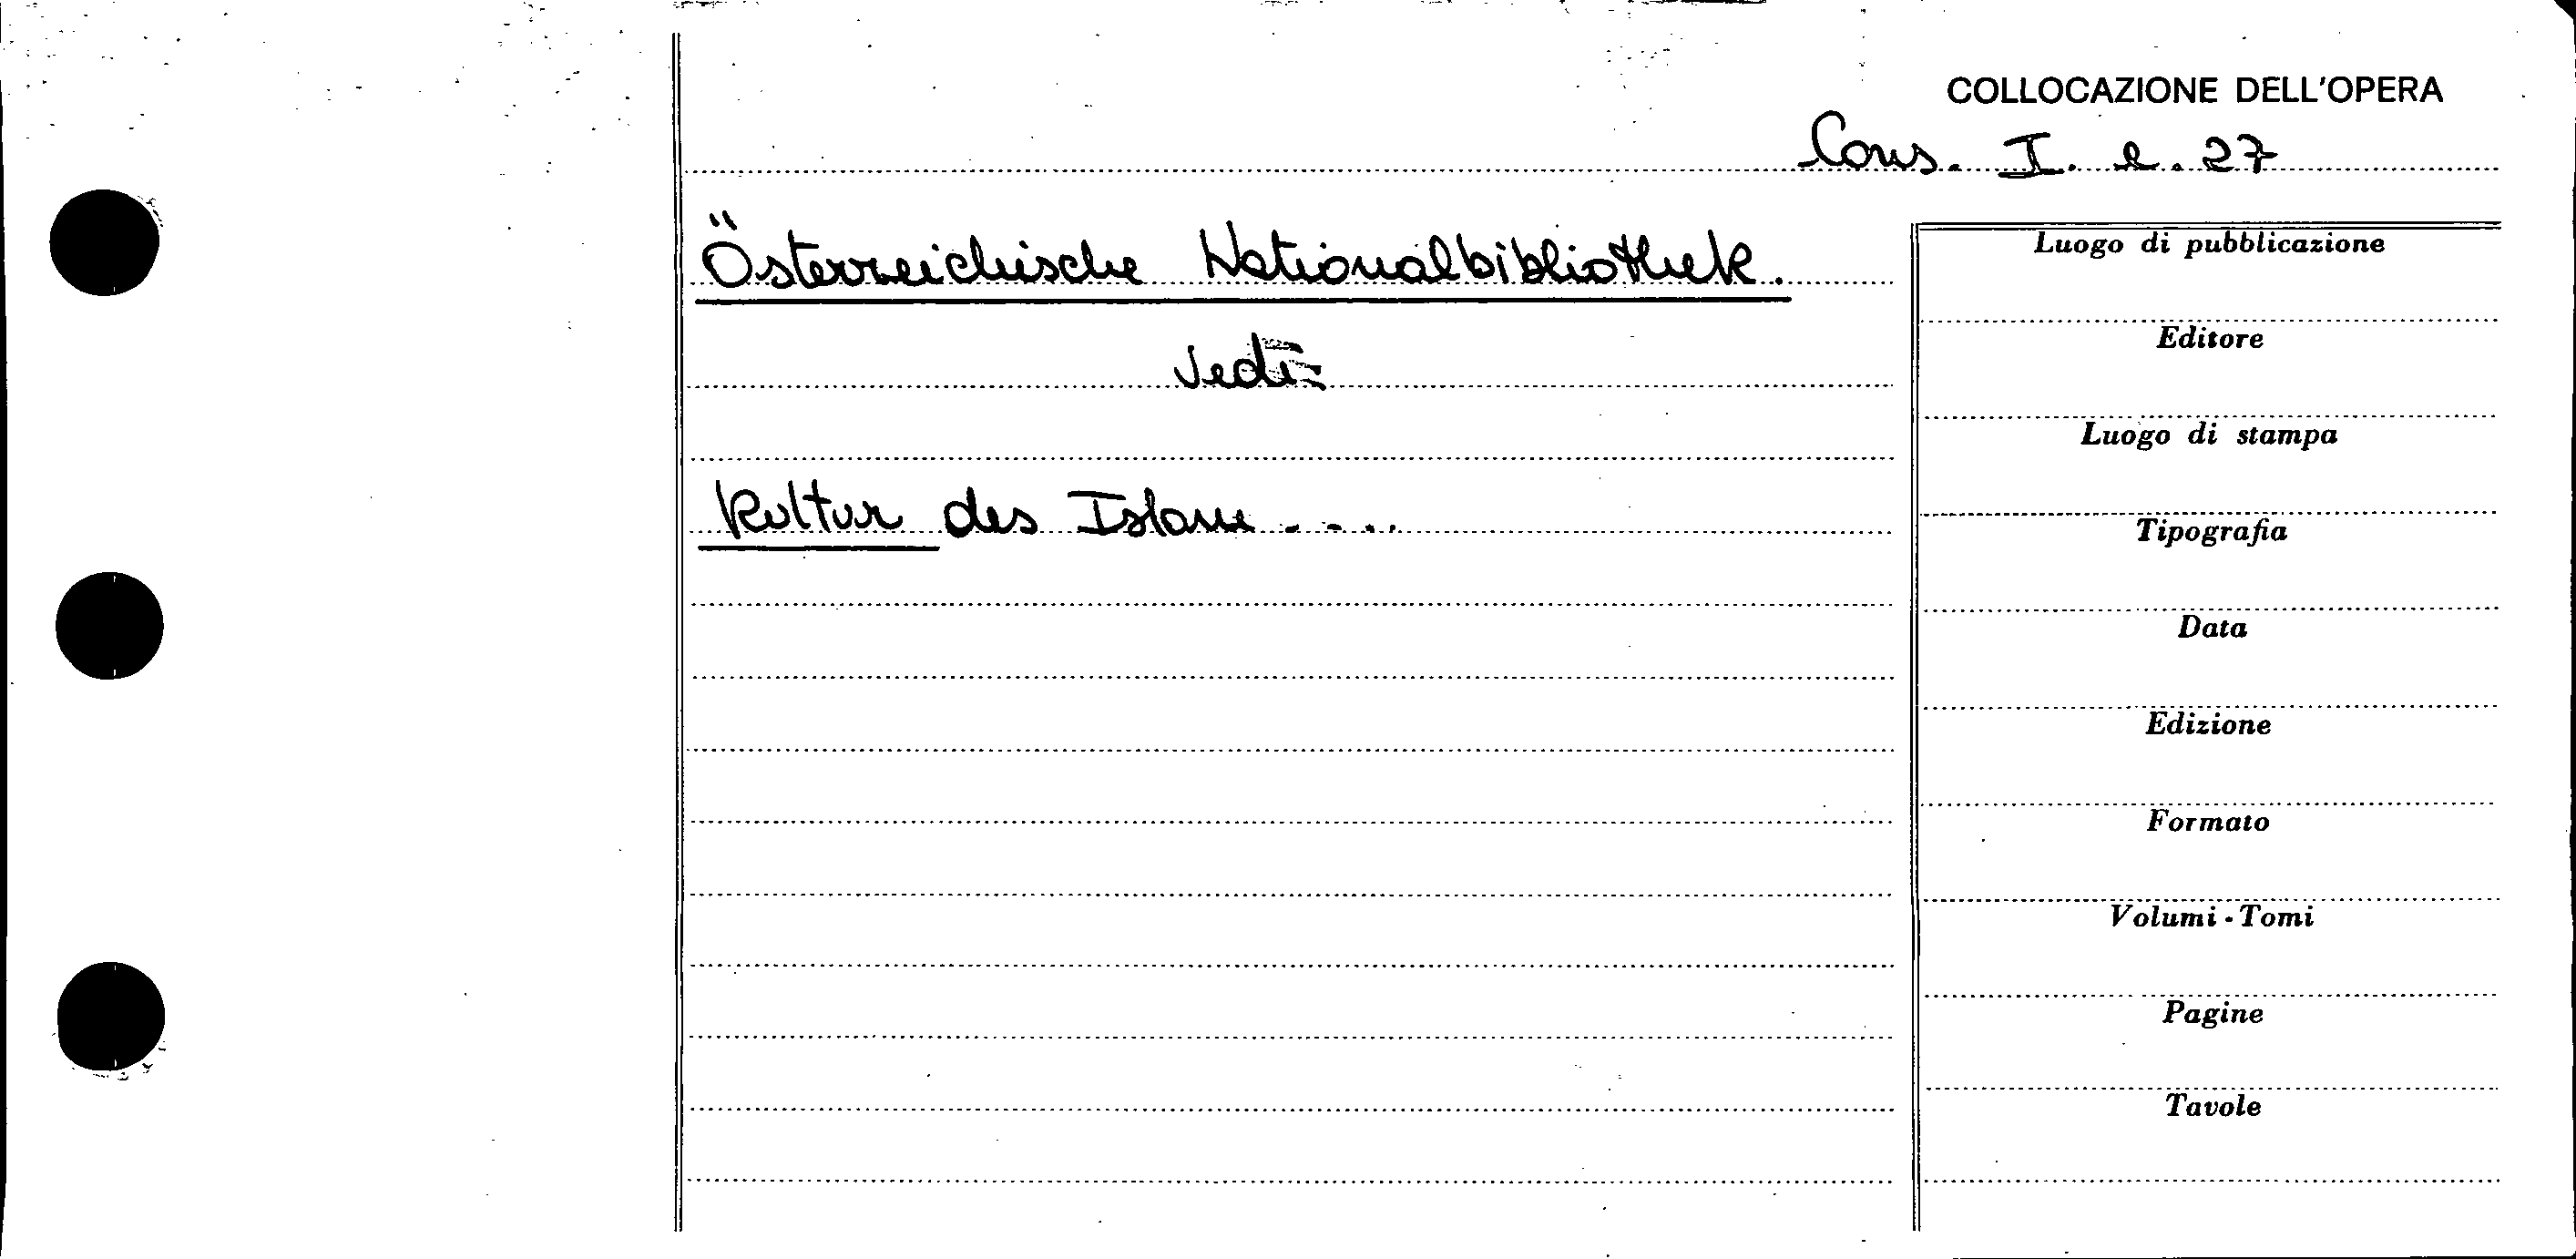 COLLOCAZIONE DELL'OPERA
Cons. I. e. 27
Österreichische Nationalbibliothek.
Vedi
Kultur des Islam ....
Luogo di pubblicazione
Editore
Luogo di stampa
Tipografia
Data
Edizione
Formato
Volumi - Tomi
Pagine
Tavole